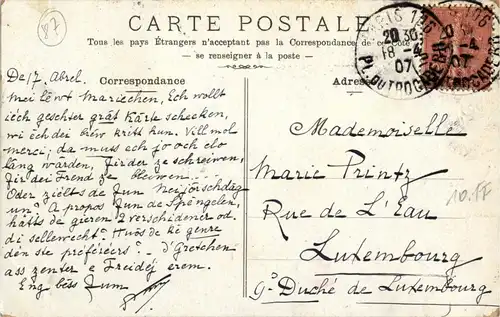 87
CARTE POSTALE
Tous les pays Étrangers n'acceptent pas la Correspondance de ce côté
— se renseigner à la poste —
Correspondance
Adresse
PARIS 126
20 30
18 -4
07
De 17. Abrel.
Mei léwt Mariechen, Ech wollt
iech geschter grât Karte schecken,
wi ech dei brew kritt hun. Vill mol
merci; da muss ech jo och elo
lâng wârden, fir der ze schreiwen,
fir dei Frend ze bleiwen. —
Oder ziélts de Jun Neijorschdâg
un? A propos Jun de Spéngelen,
hätts de gieren 2 verschidener od.
di selleweckt? Huós de ké genre
dén ste préferéiers? — d'Gretchen
ass zënter e Freidéj erem.
Eng béss Jum
Mademoiselle
Marie Printz
Rue de L'Eau
Luxembourg
Gd Duché de Luxembourg